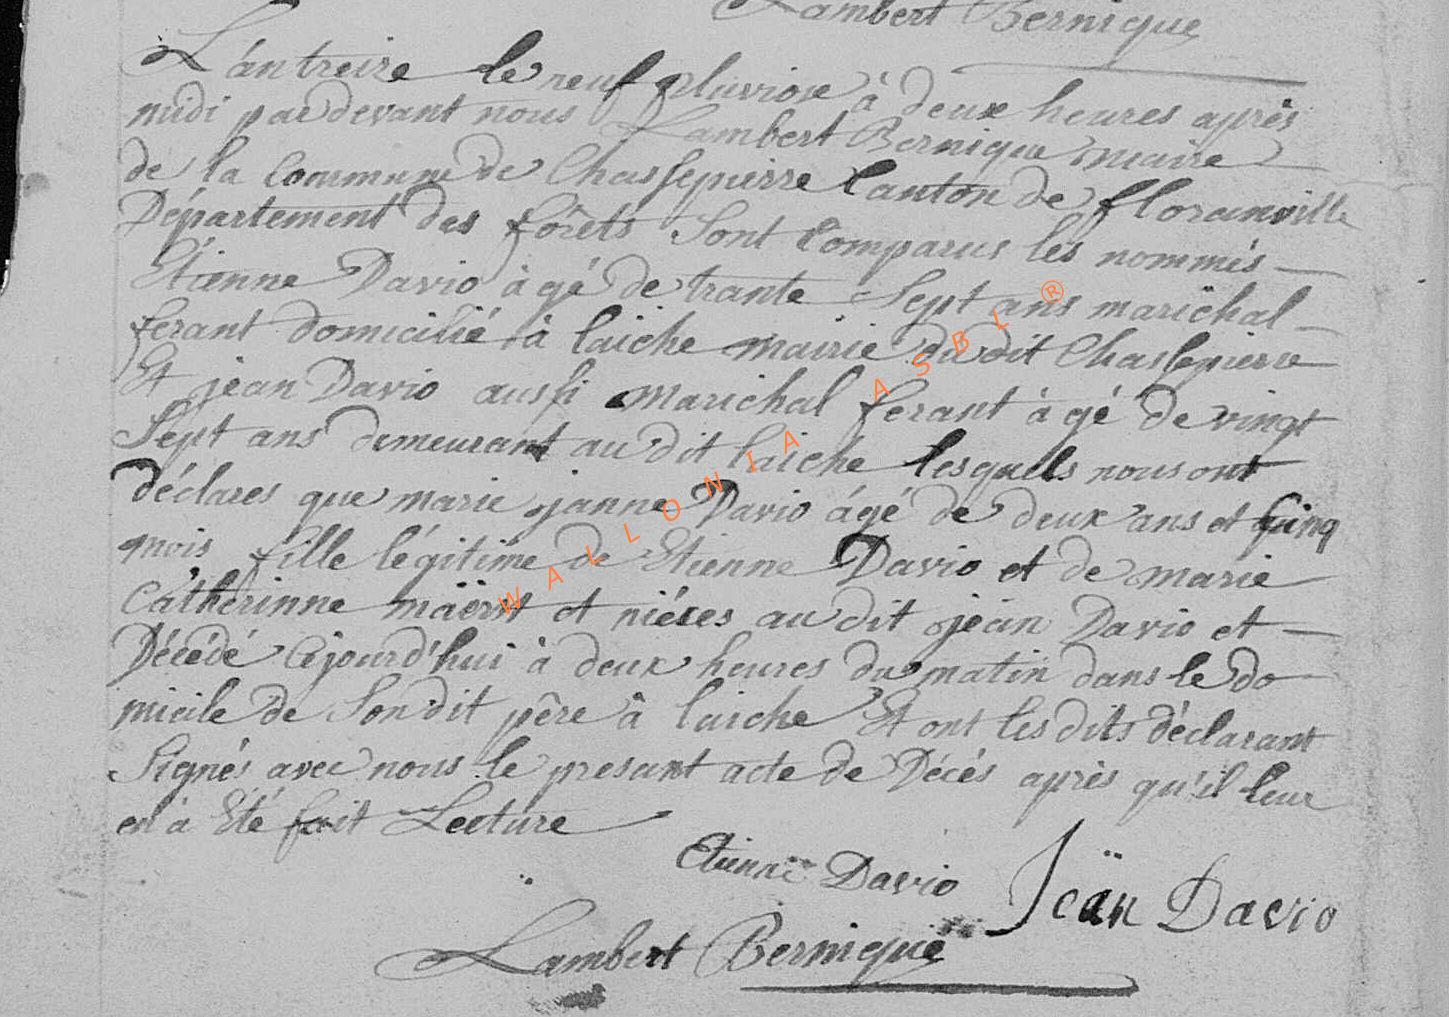 Lambert Bernique
L'an treize le neuf pluviose à deux heures après
midi par devant nous Lambert Bernique maire
de la Commune de Chassepierre Canton de florainville
Département des forêts Sont Comparus les nommés
Etienne Davio àgé de trante Sept ans marichal
ferant domicilié à laiche mairie du dit Chassepierre
Et jean Davio aussi marichal ferant àgé de vingt
Sept ans demeurant au dit laiche lesquels nous ont
déclares que marie janne Davio ágé de deux ans et Cinq
mois fille légitime de Etienne Davio et de marie
Catherinne et niéces au dit jean Davio et
Décédé Ajourd'hui à deux heures du matin dans le do
micile de Son dit père à laiche Et ont les dits déclarant
Signés avec nous le presant acte de Décés après qu'il leur
en à Eté fait Lecture
Etienne Davio Jean Davio
Lambert Bernique
WALLONIA ASBL ®